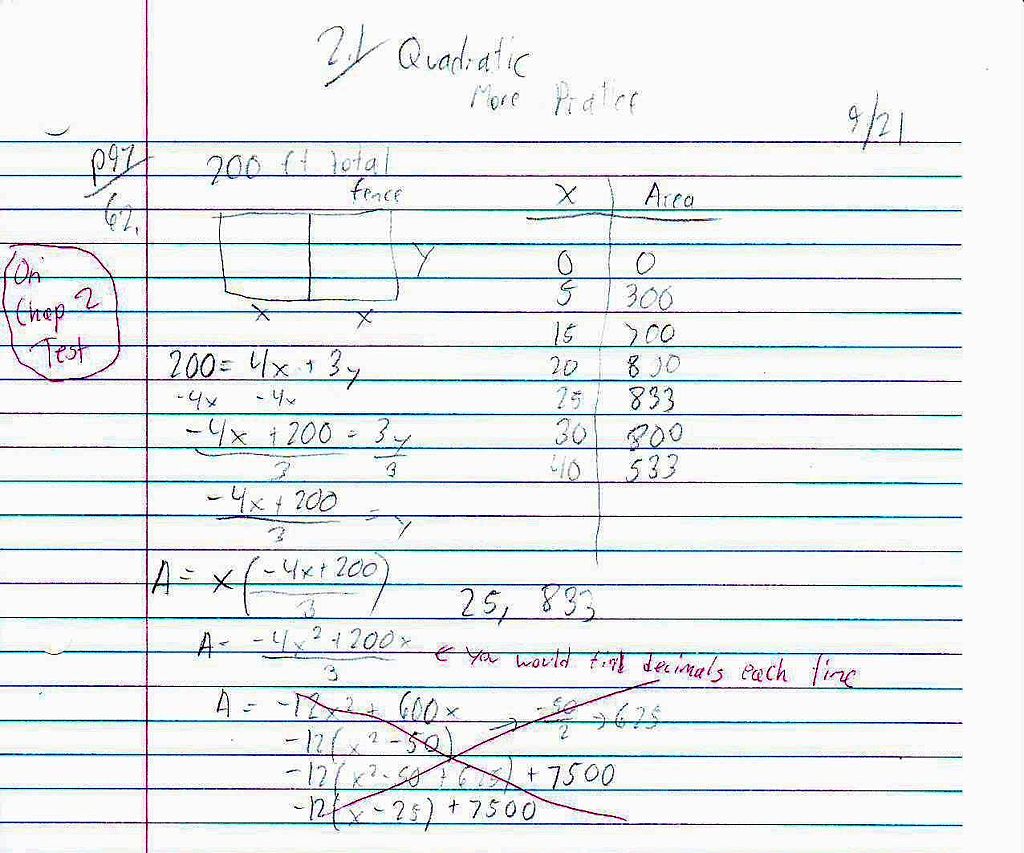 2.1 Quadratic
More Pratice
9/21
p97
62.
200 ft total
fence
y
x x
On
Chap 2
Test
x Area
0 0
5 300
15 700
20 800
25 833
30 800
40 533
200 = 4x + 3y
-4x -4x
-4x + 200 = 3y
3 3
-4x + 200 = y
3
A = x(-4x+200)
3
25, 833
A = -4x² + 200x
3
← You would find decimals each line
A = -12x² + 600x → -50/2 → 625
-12(x² - 50)
-12(x² - 50 + 625) + 7500
-12(x - 25) + 7500